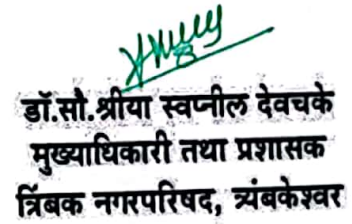 डॉ.सौ.श्रीया स्वप्नील देवचके
मुख्याधिकारी तथा प्रशासक
त्रिंबक नगरपरिषद, त्र्यंबकेश्वर